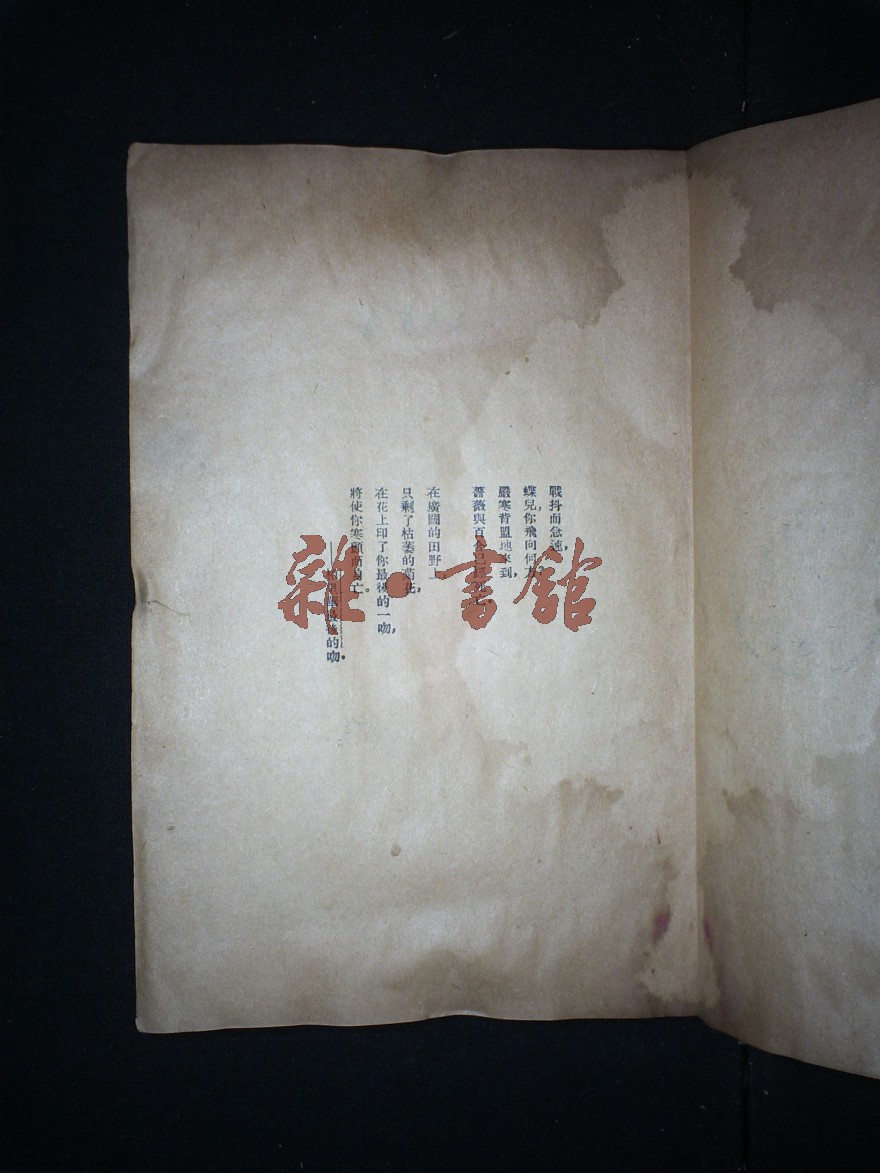 戰抖而急速,
蝶兒,你飛向何方?
嚴寒背盟地來到,
薔薇與百合已經死亡

在廣闊的田野上,
只剩了枯萎的菊花,
在花上印了你最後的一吻,
將使你寒顫而的亡。
最後的吻。
雜·書館